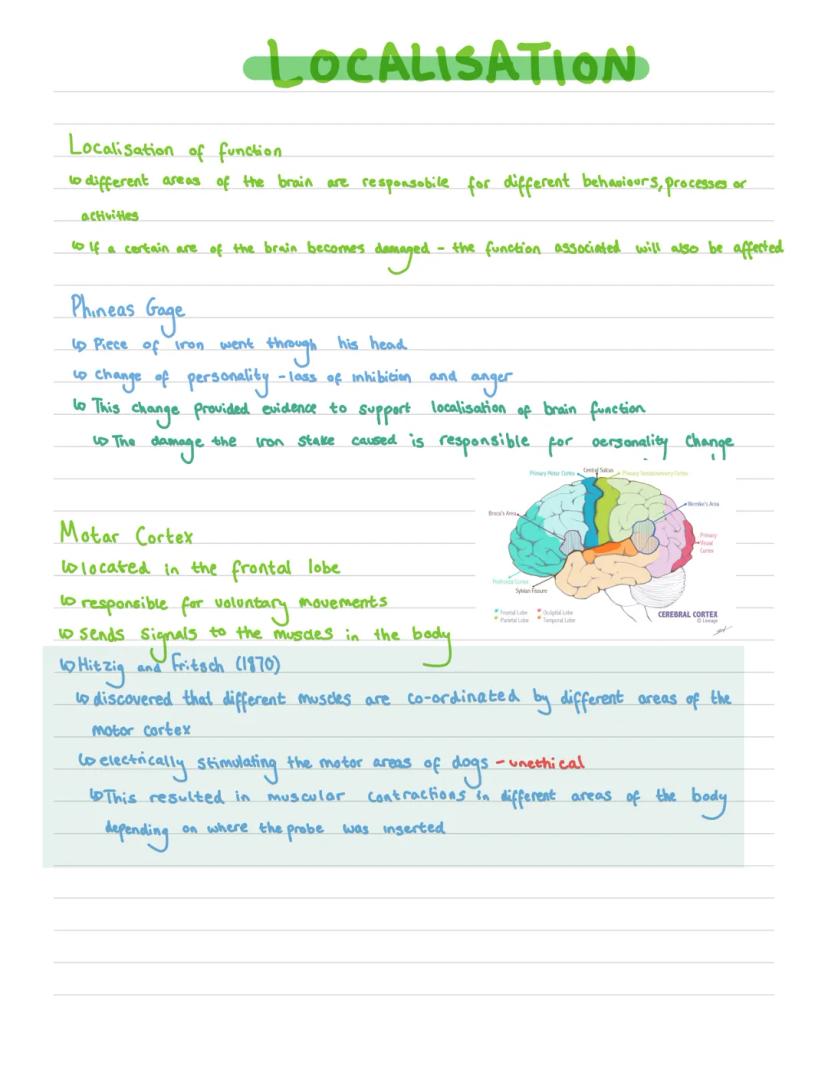 LOCALISATION
Localisation of function
↳ different areas of the brain are responsobile for different behaviours, processes or
activities
↳ If a certain are of the brain becomes damaged - the function associated will also be affected
Phineas Gage
↳ Piece of iron went through his head
↳ Change of personality - loss of inhibition and anger
↳ This change provided evidence to support localisation of brain function
↳ The damage the iron stake caused is responsible for personality change
Primary Motor Cortex
Central Sulcus
Primary Somatosensory Cortex
Broca's Area
Wernike's Area
Primary
Visual
Cortex
Prefrontal Cortex
Sylvian Fissure
Frontal Lobe
Occipital Lobe
Parietal Lobe
Temporal Lobe
CEREBRAL CORTEX
© Lineage
Motar Cortex
↳ located in the frontal lobe
↳ responsible for voluntary movements
↳ Sends signals to the muscles in the body
↳ Hitzig and Fritsch (1870)
↳ discovered that different muscles are co-ordinated by different areas of the
motor cortex
↳ electrically stimulating the motor areas of dogs - unethical
↳ This resulted in muscular contractions in different areas of the body
depending on where the probe was inserted